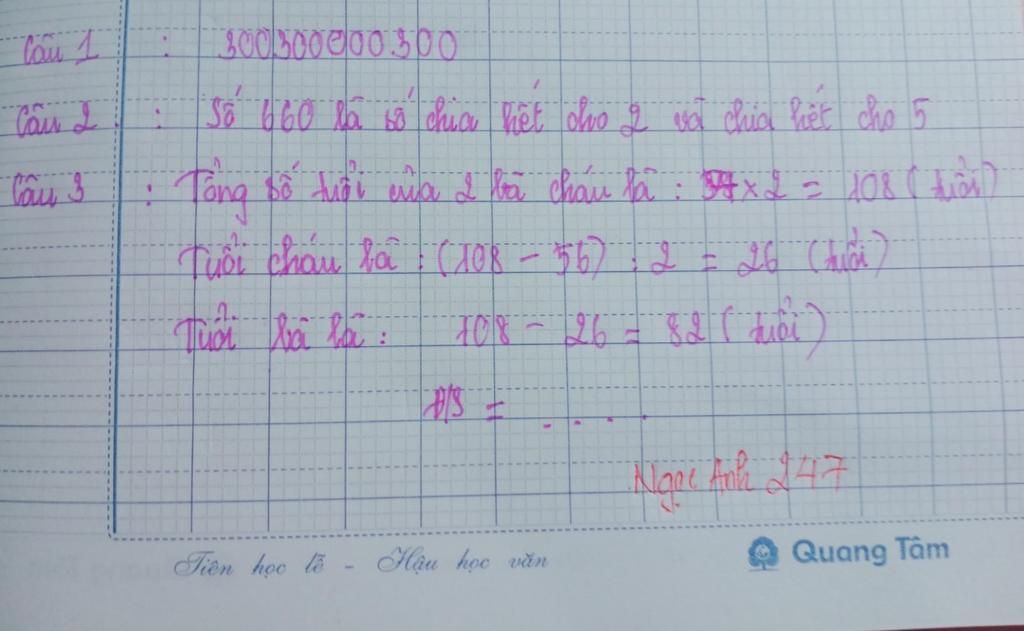 Câu 1 : 300300000300
Câu 2 : Số 660 là số chia hết cho 2 và chia hết cho 5
Câu 3 : Tổng số tuổi của 2 bà cháu là : 54 x 2 = 108 ( tuổi )
Tuổi cháu là : (108 - 56) : 2 = 26 (tuổi)
Tuổi bà là : 108 - 26 = 82 ( tuổi )
Đ/S = . . . .
Ngọc Anh 247
Tiên học lễ - Hậu học văn
Quang Tâm